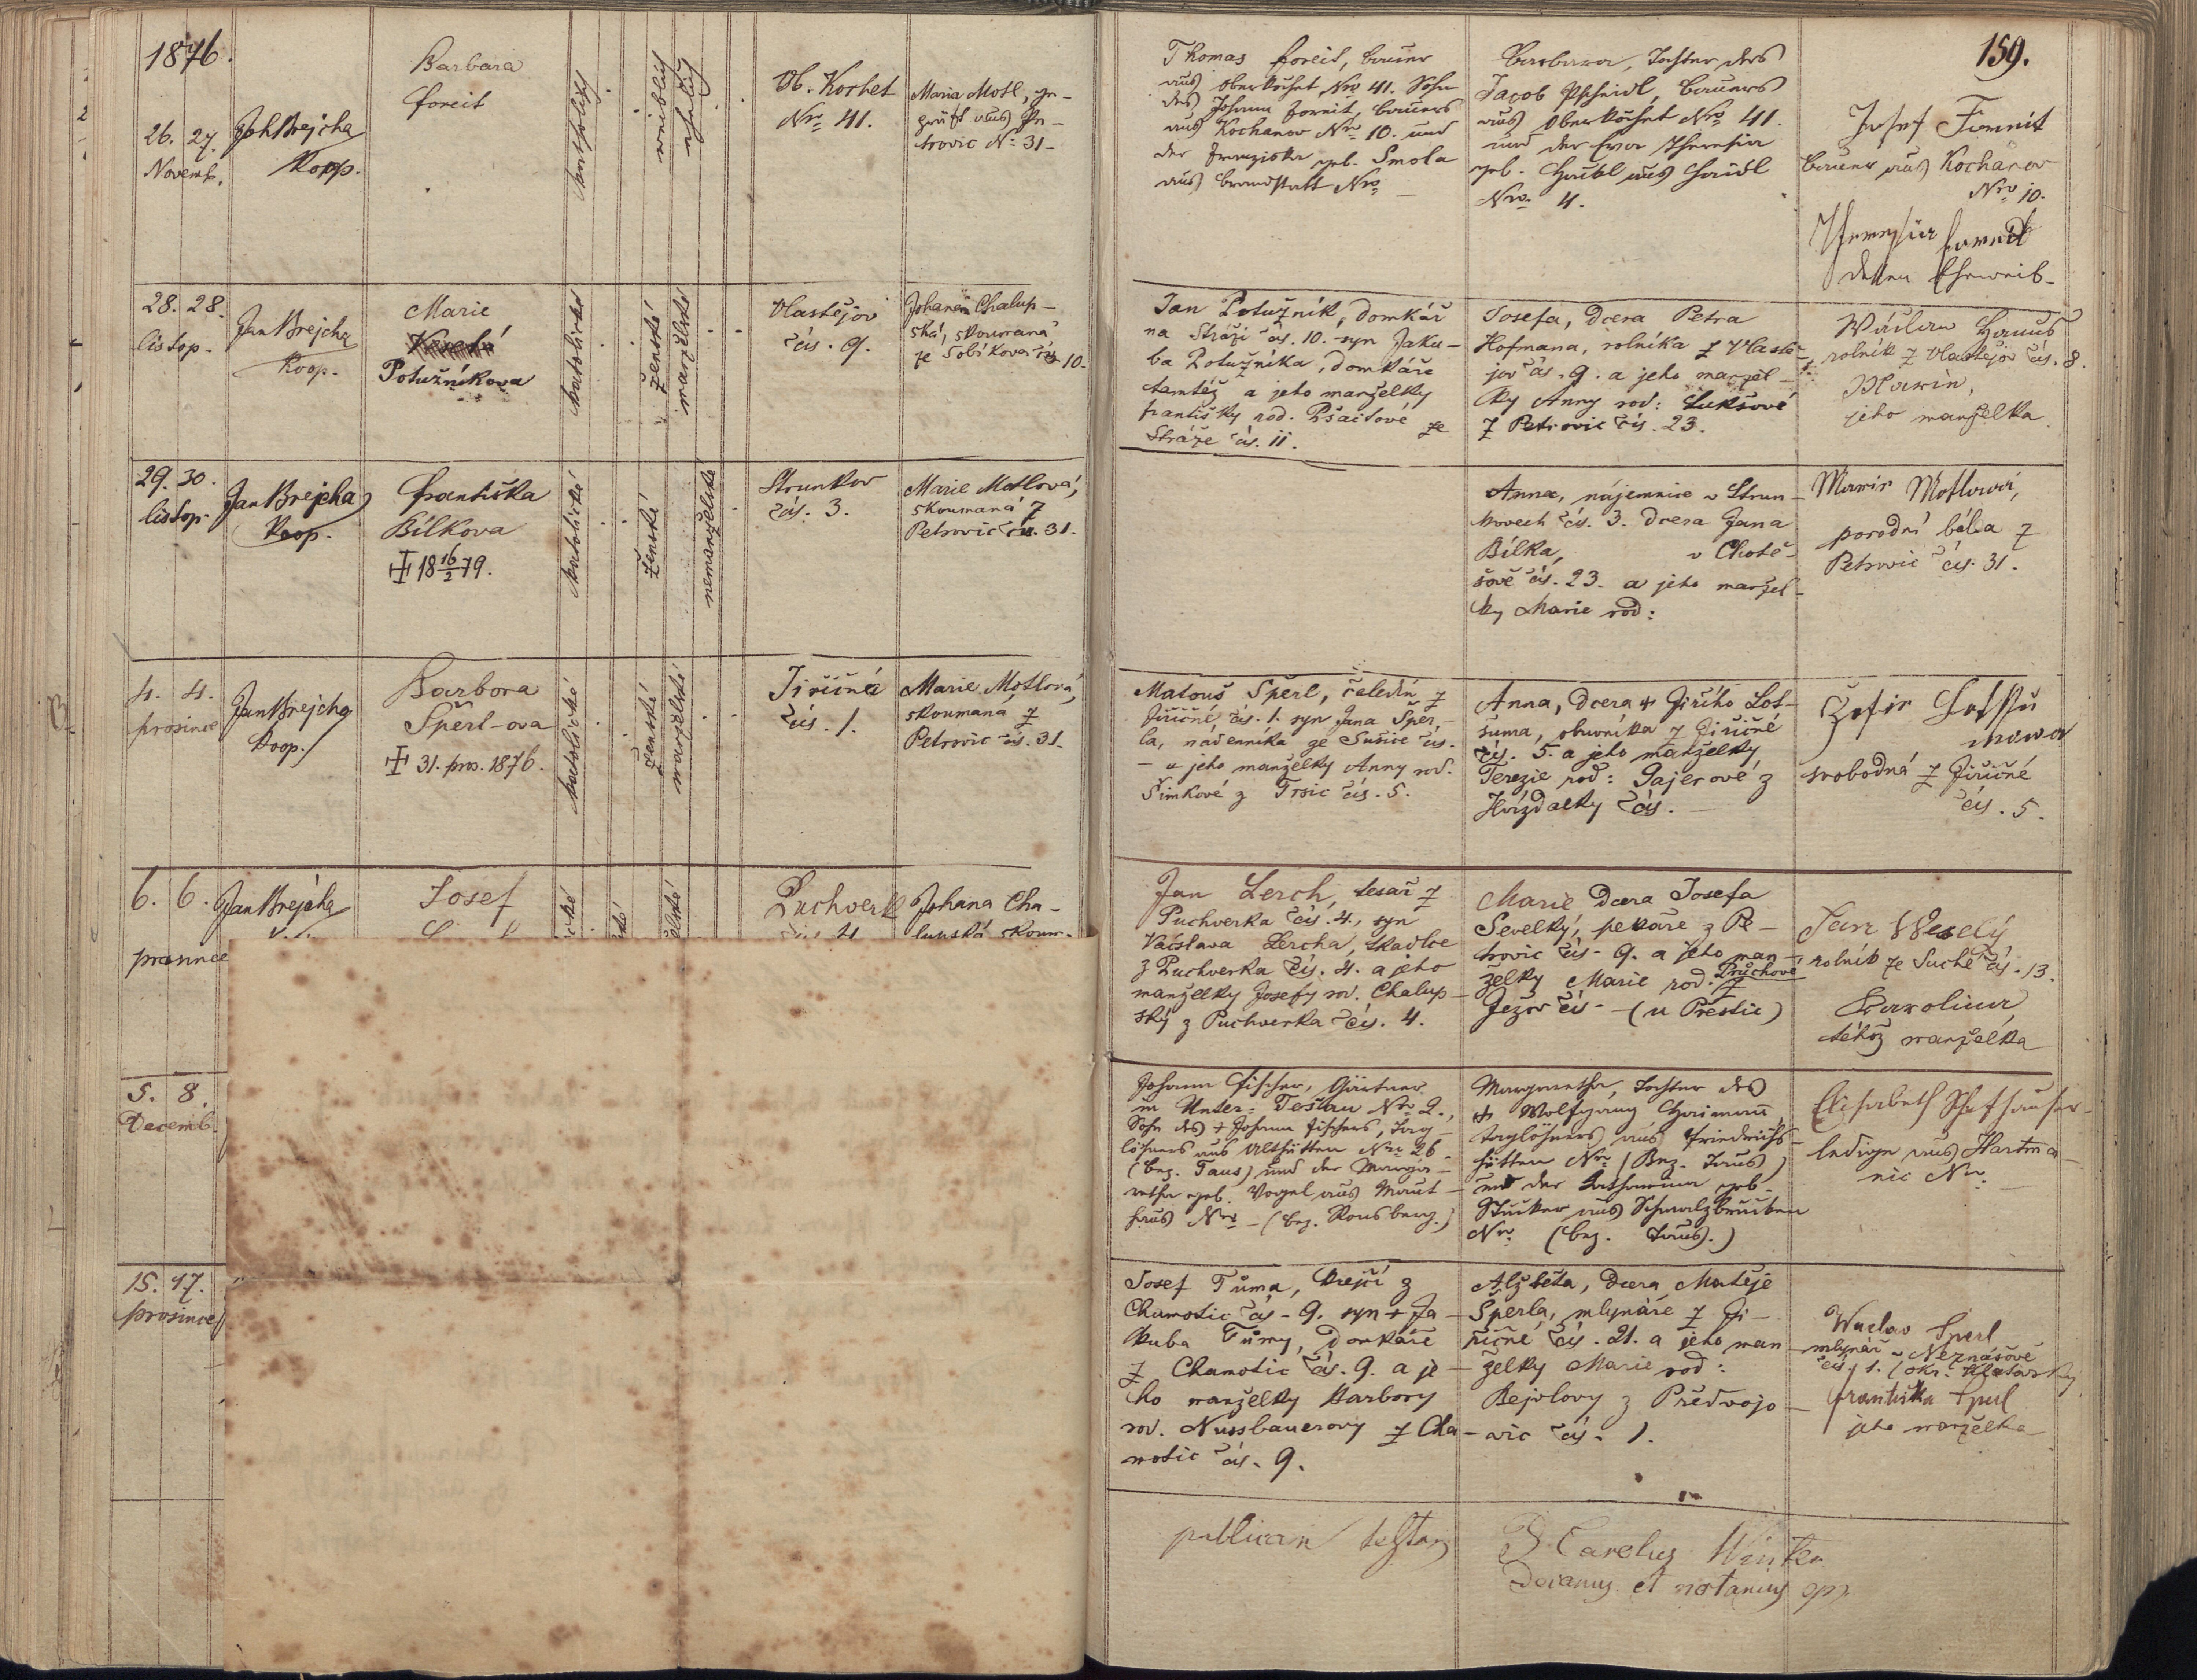 1876.
159.
26. 27.
Novemb.
Joh Brejcha
Koop.
Barbara
Foreit
katholisch
weiblich
ehelich
Ob. Kochet
Nro 41.
Maria Motl, ge-
prüft aus Pe-
trovic No 31-
Thomas Foreit, Bauer
aus Oberkochet Nro 41. Sohn
des Johann Foreit, Bauers
aus Kochanov Nro 10. und
der Franziska geb. Smola
aus Brandstatt Nro –
Barbara, Tochter des
Jacob Pscheidl, Bauers
aus Oberkochet Nro 41.
und der Theresia
geb. Haidl aus Haidl
Nro 4.
Josef Foreit
Bauer aus Kochanov
Nro 10.
Theresia Foreit
dessen Eheweib-
28. 28.
listop.
Jan Brejcha
Koop.
Marie
Potužníkova
katolické
ženské
manželské
Vlastějov
čís. 9.
Johana Chalup-
ská, skoumaná
ze Sobíkova čís 10.
Jan Potužník, domkář
na Stráži čís. 10. syn Jaku-
ba Potužníka, domkáře
tamtéž a jeho manželky
Františky rod. Pšaitové ze
Stráže čís. 11.
Josefa, dcera Petra
Hofmana, rolníka z Vlastě-
jov čís. 9. a jeho manžel-
ky Anny rod: Lukšové
z Petrovic čís. 23.
Václav Hanus
rolník z Vlastějov čís. 8.
Marie,
jeho manželka
29. 30.
listop.
Jan Brejcha
Koop.
Františka
Bílkova
✝ 18 16/2 79.
katolické
ženské
nemanželské
Strunkov
čís. 3.
Marie Motlová,
skoumaná z
Petrovic čís. 31.
Anna, nájemnice v Strun-
kovech čís. 3. dcera Jana
Bílka, v Chotě-
šově čís. 23. a jeho manžel-
ky Marie rod:
Marie Motlová,
porodní bába z
Petrovic čís. 31.
4. 4.
prosince
Jan Brejcha
Koop.
Barbora
Šperl-ova
✝ 31. pros. 1876.
katolické
ženské
manželské
Jiřičná
čís. 1.
Marie Motlová,
skoumaná z
Petrovic čís. 31.
Matouš Šperl, čeledín z
Jiřičné, čís. 1. syn Jana Šper-
la, nádenníka ze Sušice čís.
– a jeho manželky Anny rod.
Šimkové z Trsic čís. 5.
Anna, dcera ✝ Jiřího Lot-
šuma, obuvníka z Jiřičné
čís. 5. a jeho manželky
Terezie rod: Pajerové z
Hvízdalky čís. –
Žofie
svobodná z Jiřičné
čís. 5.
6. 6.
prosince
Jan Brejcha
Josef
Puchverk
Johana Cha-
lupská skoum-
Jan Lerch, tesař z
Puchverka čís. 4., syn
Václava Lercha, tkadlce
z Puchverka čís. 4. a jeho
manželky Josefy rod. Chalup-
ský z Puchverka čís. 4.
Marie dcera Josefa
Sevelký, pekaře z Pe-
trovic čís- 9. a jeho man-
želky Marie rod. Průchové z
Ježov čís- – (u Přestic)
Jan Weselý
rolník ze Suché čís. 13.
Karolina,
téhož manželka
5. 8.
Decemb.
Johann Fischer, Gärtner
in Unter-Teschau Nro 2.,
Sohn des ✝ Johann Fischers, Tag-
löhners aus Althütten Nro 26.
(Bez. Taus) und der Marga-
retha geb. Vogel aus Maut-
haus Nro – (Bez. Ronsberg.)
Margaretha, Tochter des
✝ Wolfgang Haimann,
Taglöhners aus Friedrichs-
hütten Nro (Bez. Taus)
und der Katharina geb.
aus Schmalzgruben
Nro (Bez. Taus.)
Elisabeth Schafhauser-
ledige aus Hartma-
nic Nro –
15. 17.
prosince
Josef Tůma, krejčí z
Chamotic čís- 9. syn ✝ Ja-
kuba Tůmy, domkáře
z Chamotic čís. 9. a je-
ho manželky Barbory
rod. Nussbauerovy z Cha-
motic čís. 9.
Alžběta, dcera Matěje
Šperla, mlynáře z Ji-
řičné čís. 21. a jeho man-
želky Marie rod:
Bejvlovy z Předvojo-
vic čís. 1.
Waclav Sperl
mlynář v Neznášově
čís. 1. (okr. Klatovský
Františka Sperl
jeho manželka
publican testor
P. Carolus Winter
Decanus et notarius epp.